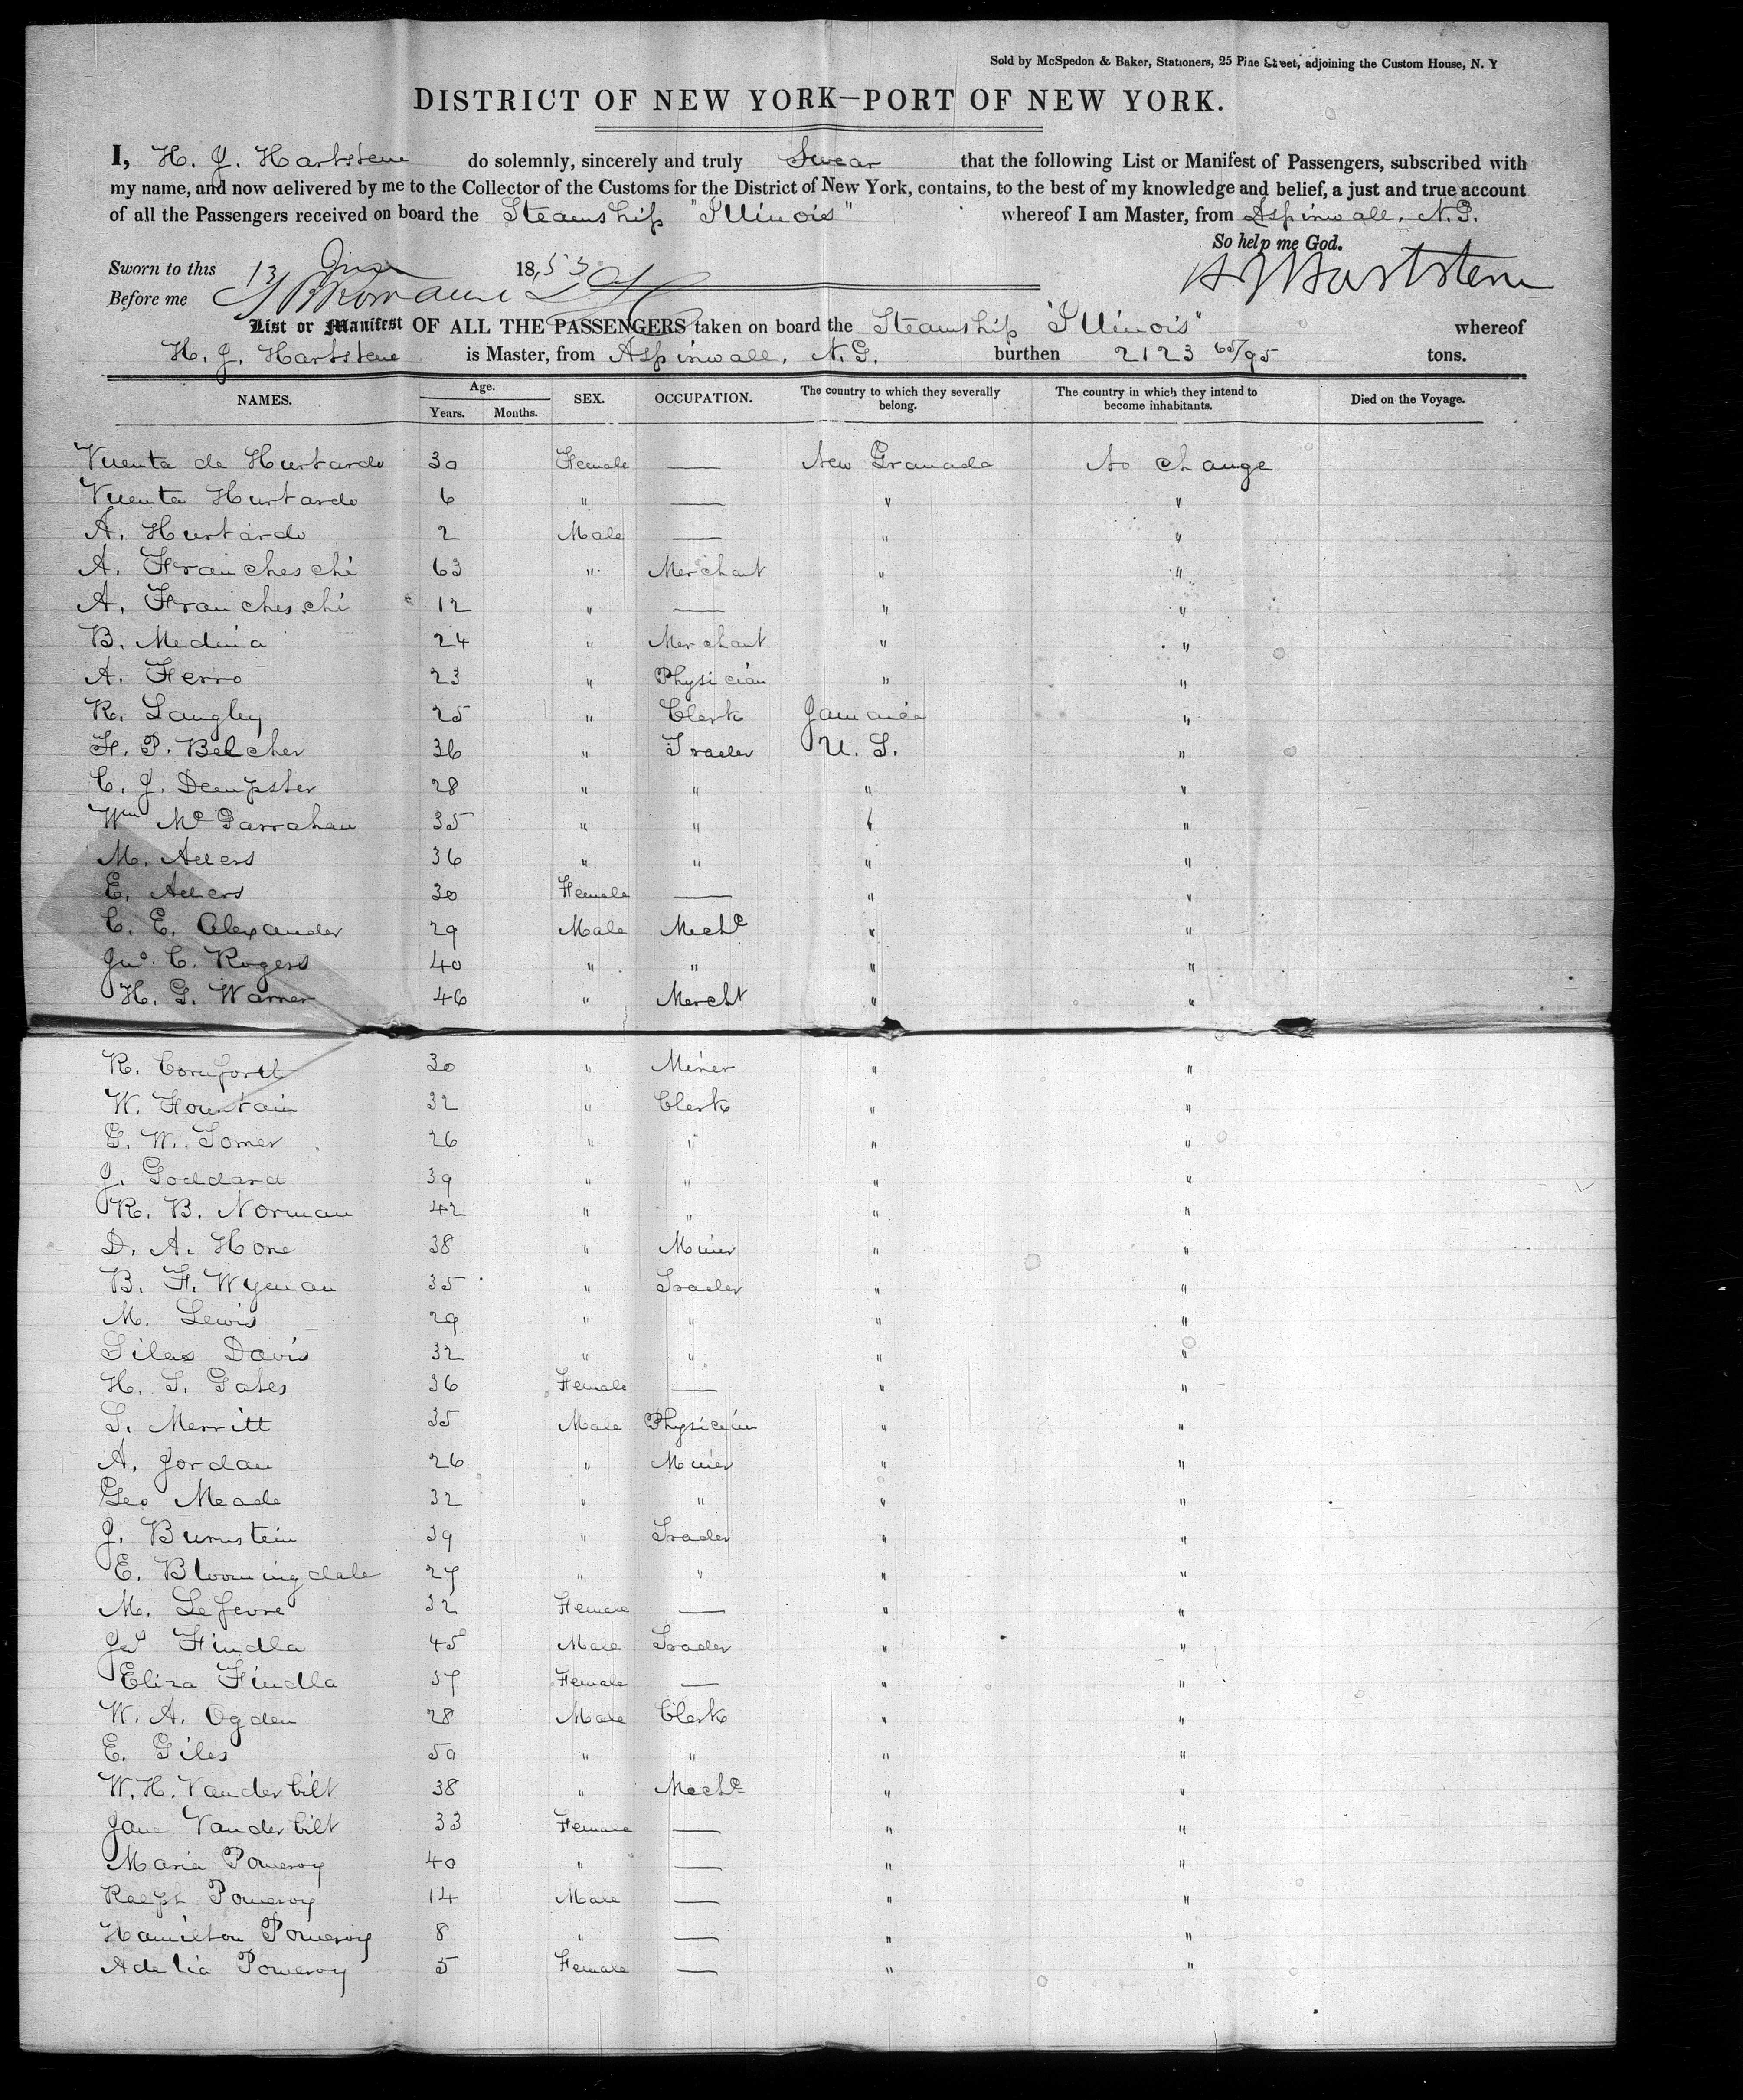 Sold by McSpedon & Baker, Stationers, 25 Pine Street, adjoining the Custom House, N. Y
DISTRICT OF NEW YORK—PORT OF NEW YORK.
I, H. J. Hartstene do solemnly, sincerely and truly Swear that the following List or Manifest of Passengers, subscribed with
my name, and now delivered by me to the Collector of the Customs for the District of New York, contains, to the best of my knowledge and belief, a just and true account
of all the Passengers received on board the Steamship "Illinois" whereof I am Master, from Aspinwall. N.G.
So help me God.
Sworn to this 13 June 1853 H J Hartstene
Before me
List or Manifest OF ALL THE PASSENGERS taken on board the Steamship "Illinois" whereof
H. J. Hartstene is Master, from Aspinwall, N.G. burthen 2123 65/95 tons.
NAMES. Age. Years. Months. SEX. OCCUPATION. The country to which they severally belong. The country in which they intend to become inhabitants. Died on the Voyage.
Vuenta de Hurtardo 30 Female — New Granada No change
Vuenta Hurtardo 6 " — " "
A. Hurtardo 2 Male — " "
A. Francheschi 63 " Merchant " "
A. Francheschi 12 " — " "
B. Medina 24 " Merchant " "
A. Ferro 23 " Physician " "
R. Langley 25 " Clerk Jamaica "
F. P. Belcher 36 " Trader U. S. "
C. J. Dempster 28 " " " "
Wm McGarrahan 35 " " " "
M. Allers 36 " " " "
E. Allers 30 Female — " "
C. E. Alexander 29 Male Mechc " "
Jno. C. Rogers 40 " " " "
H. G. Warner 46 " Mercht " "
R. Cornforth 30 " Miner " "
W. Fountain 32 " Clerk " "
G. W. Tomer 26 " " " "
J. Goddard 39 " " " "
R. B. Norman 42 " " " "
D. A. Hone 38 " Miner " "
B. F. Wyman 35 " Trader " "
M. Lewis 29 " " " "
Silas Davis 32 " " " "
H. S. Gates 36 Female — " "
S. Merritt 35 Male Physician " "
A. Jordan 26 " Miner " "
Geo Meade 32 " " " "
J. Burnstein 39 " Trader " "
E. Bloomingdale 27 " " " "
M. Lefevre 32 Female — " "
Jas Findla 45 Male Trader " "
Eliza Findla 37 Female — " "
W. A. Ogden 28 Male Clerk " "
E. Giles 50 " " " "
W. H. Vanderbilt 38 " Mechc " "
Jane Vanderbilt 33 Female — " "
Maria Pomeroy 40 " — " "
Ralph Pomeroy 14 Male — " "
Hamilton Pomeroy 8 " — " "
Adelia Pomeroy 5 Female — " "